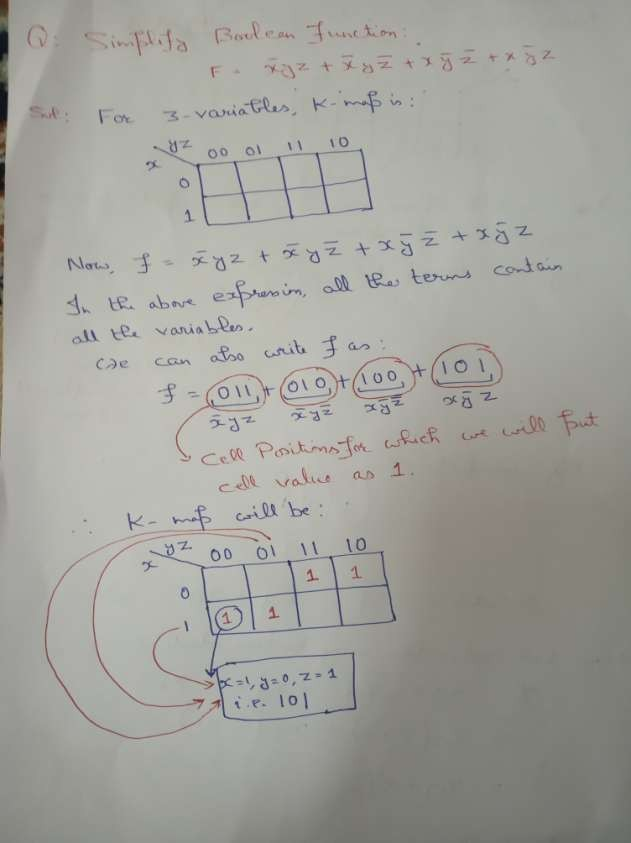 Q: Simplify Boolean Function:
F = x̄yz + x̄yz̄ + xȳz̄ + xȳz
Sol: For 3-variables, K-map is:
yz 00 01 11 10
x
0
1
Now, f = x̄yz + x̄yz̄ + xȳz̄ + xȳz
In the above expression, all the terms contain
all the variables.
We can also write f as:
f = 011 + 010 + 100 + 101
x̄yz x̄yz̄ xȳz̄ xȳz
Cell Positions for which we will put
cell value as 1.
∴ K-map will be:
yz 00 01 11 10
x
0 1 1
1 1 1
x=1, y=0, z=1
i.e. 101